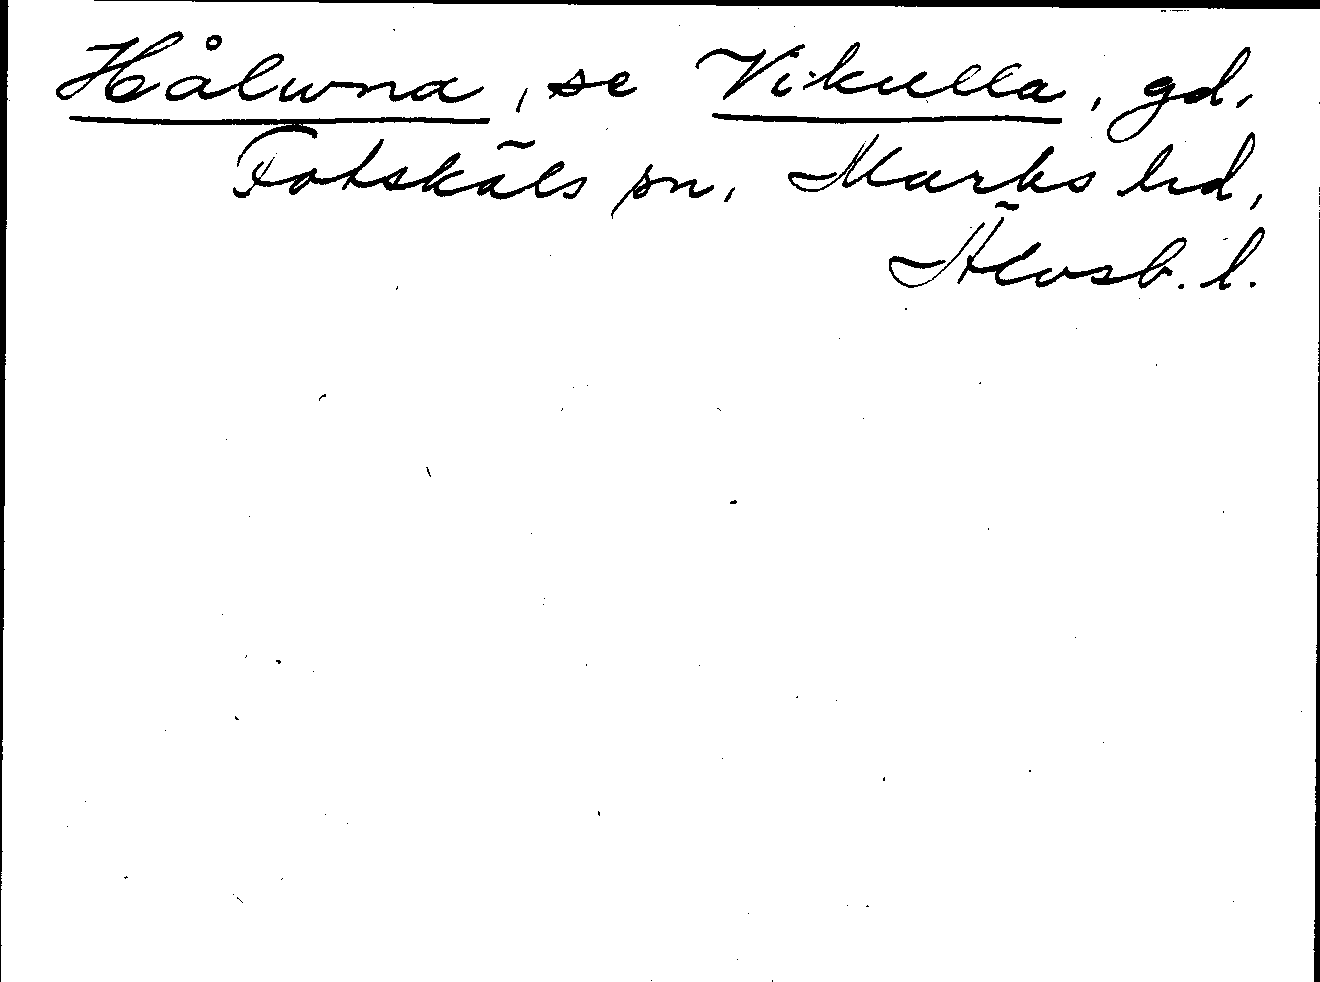 Hålwna, se Vikulla, gd,
Fotskäls sn, Marks hd,
Älvsb. l.